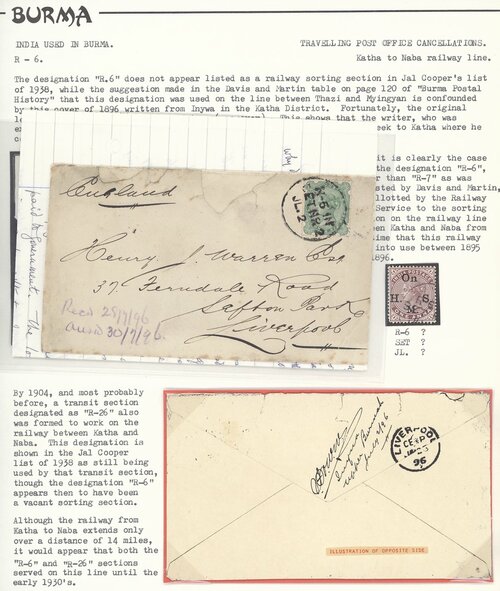 BURMA
INDIA USED IN BURMA.
TRAVELLING POST OFFICE CANCELLATIONS.
R - 6.
Katha to Naba railway line.
The designation "R.6" does not appear listed as a railway sorting section in Jal Cooper's list
of 1938, while the suggestion made in the Davis and Martin table on page 120 of "Burma Postal
History" that this designation was used on the line between Thazi and Myingyan is confounded
by this cover of 1896 written from Inywa in the Katha District. Fortunately, the original
This shows that the writer, who was
seek to Katha where he
it is clearly the case
the designation "R-6",
than "R-7" as was
sted by Davis and Martin,
llotted by the Railway
Service to the sorting
on on the railway line
en Katha and Naba from
ime that this railway
into use between 1895
1896.
why
paid to Government. The
England
R-6
SET
JL. 2
Henry J. Warren Esq
37 Ferndale Road
Sefton Park
Liverpool
Recd 28/7/96
Ansd 30/7/96.
On
H. S.
M.
R-6 ?
SET ?
JL. ?
By 1904, and most probably
before, a transit section
designated as "R-26" also
was formed to work on the
railway between Katha and
Naba. This designation is
shown in the Jal Cooper
list of 1938 as still being
used by that transit section,
though the designation "R-6"
appears then to have been
a vacant sorting section.
Although the railway from
Katha to Naba extends only
over a distance of 14 miles,
it would appear that both the
"R-6" and "R-26" sections
served on this line until the
early 1930's.
Upper Burmah
LIVERPOOL
96
ILLUSTRATION OF OPPOSITE SIDE